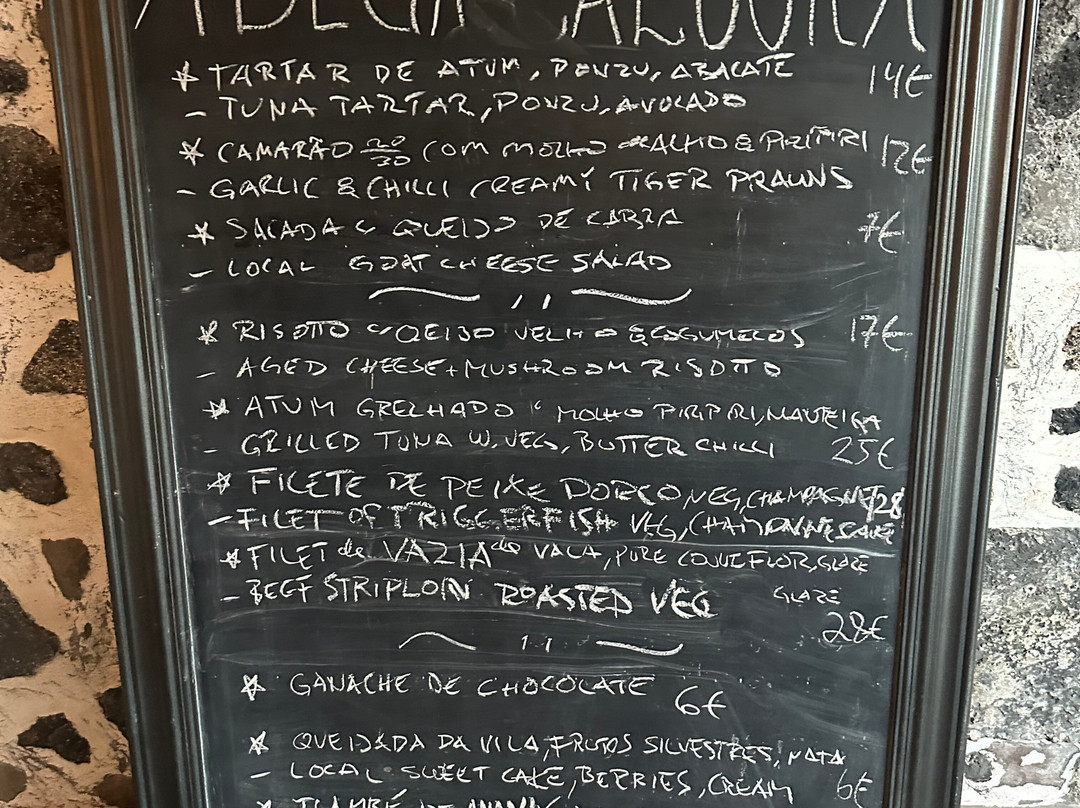 ADEGA CALOURA
* TARTAR DE ATUM, PONZU, ABACATE 14€
- TUNA TARTAR, PONZU, AVOCADO
* CAMARÃO 20/30 COM MOLHO ALHO & PIRIPIRI 12€
- GARLIC & CHILLI CREAMY TIGER PRAWNS
* SALADA C QUEIJO DE CABRA 7€
- LOCAL GOAT CHEESE SALAD
* RISOTTO C/ QEIJO VELHO & COGUMELOS 17€
- AGED CHEESE + MUSHROOM RISOTTO
* ATUM GRELHADO C MOLHO PIRIPIRI, MANTEIGA
- GRILLED TUNA W. VEG, BUTTER CHILLI 25€
* FILETE DE PEIXE PORCO, VEG, CHAMPAGNE 28
- FILET OF TRIGGERFISH VEG, CHAMPAGNE
* FILET de VAZIA de VACA, PURE COUVE FLOR, GLACE
- BEEF STRIPLOIN ROASTED VEG GLAZE
28€
* GANACHE DE CHOCOLATE 6€
* QUEIJADA DA VILA, FRUTOS SILVESTRES, NATA
- LOCAL SWEET CAKE, BERRIES, CREAM 6€